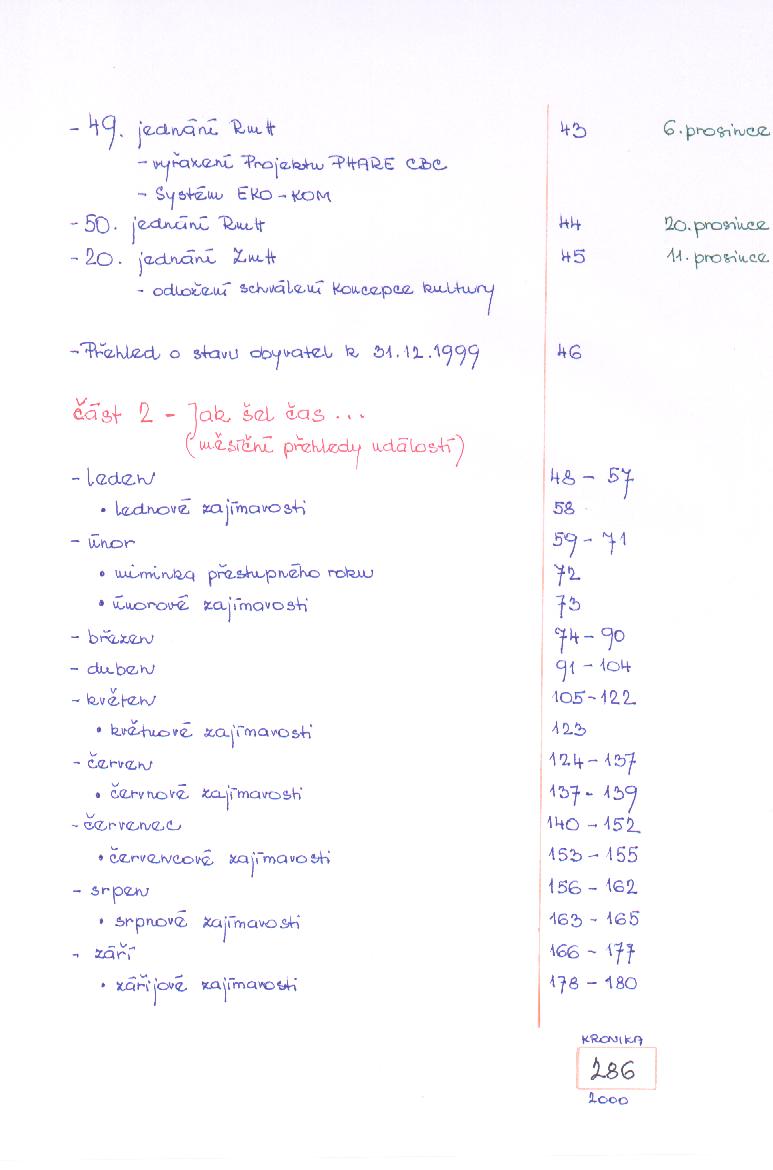 - 49. jednání RmH 43 6. prosince
- vyřazení Projektu PHARE CBC
- Systém EKO-KOM
- 50. jednání RmH 44 20. prosince
- 20. jednání ZmH 45 11. prosince
- odložení schválení Koncepce kultury
- Přehled o stavu obyvatel k 31.12.1999 46
část 2 - Jak šel čas ...
(měsíční přehledy událostí)
- leden 48 - 57
• lednové zajímavosti 58
- únor 59 - 71
• miminka přestupného roku 72
• únorové zajímavosti 73
- březen 74 - 90
- duben 91 - 104
- květen 105 - 122
• květnové zajímavosti 123
- červen 124 - 137
• červnové zajímavosti 137 - 139
- červenec 140 - 152
• červencové zajímavosti 153 - 155
- srpen 156 - 162
• srpnové zajímavosti 163 - 165
- září 166 - 177
• zářijové zajímavosti 178 - 180
KRONIKA
286
2000